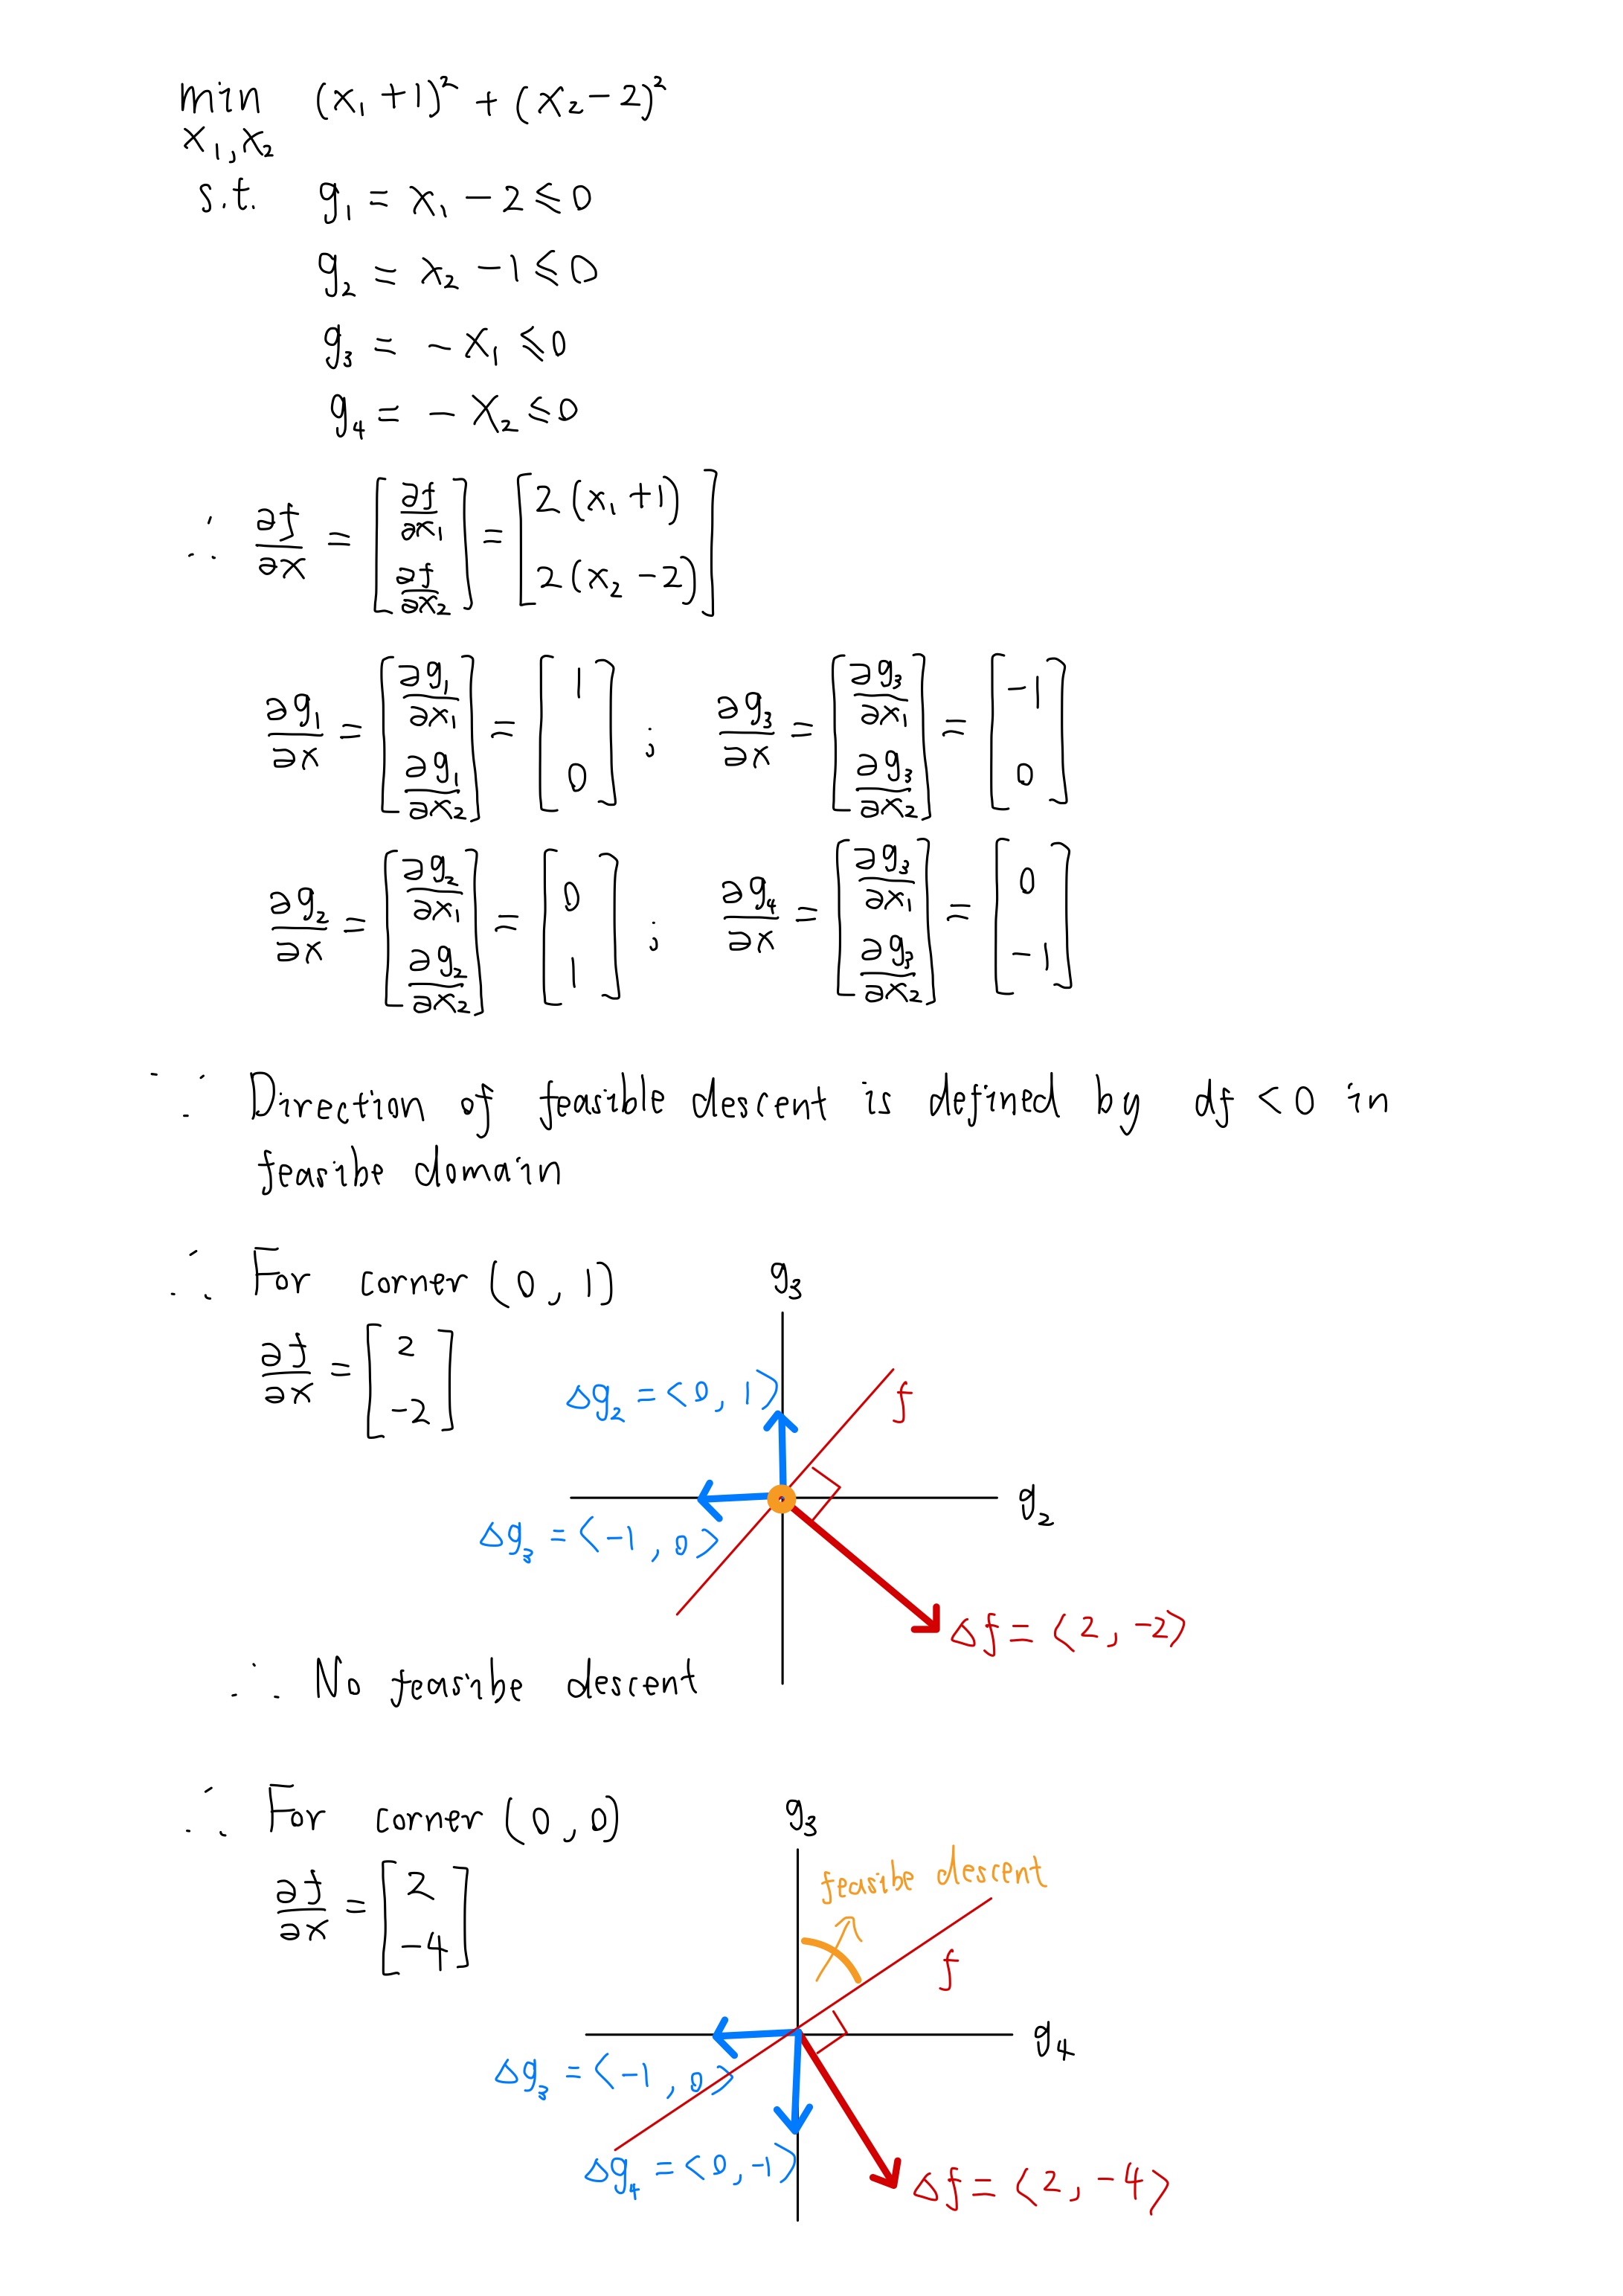 min (x₁ + 1)² + (x₂ − 2)²
x₁, x₂
s.t. g₁ = x₁ − 2 ≤ 0
g₂ = x₂ − 1 ≤ 0
g₃ = − x₁ ≤ 0
g₄ = − x₂ ≤ 0
∴ ∂f/∂x = [∂f/∂x₁ ; ∂f/∂x₂] = [2(x₁ + 1) ; 2(x₂ − 2)]
∂g₁/∂x = [∂g₁/∂x₁ ; ∂g₁/∂x₂] = [1 ; 0] ; ∂g₃/∂x = [∂g₃/∂x₁ ; ∂g₃/∂x₂] = [−1 ; 0]
∂g₂/∂x = [∂g₂/∂x₁ ; ∂g₂/∂x₂] = [0 ; 1] ; ∂g₄/∂x = [∂g₃/∂x₁ ; ∂g₃/∂x₂] = [0 ; −1]
∵ Direction of feasible descent is defined by df < 0 in
feasibe domain
∴ For corner (0, 1)
∂f/∂x = [2 ; −2]
g₃
Δg₂ = <0, 1>
f
g₂
Δg₃ = <−1, 0>
Δf = <2, −2>
∴ No feasibe descent
∴ For corner (0, 0)
∂f/∂x = [2 ; −4]
g₃
feasibe descent
f
g₄
Δg₃ = <−1, 0>
Δg₄ = <0, −1>
Δf = <2, −4>